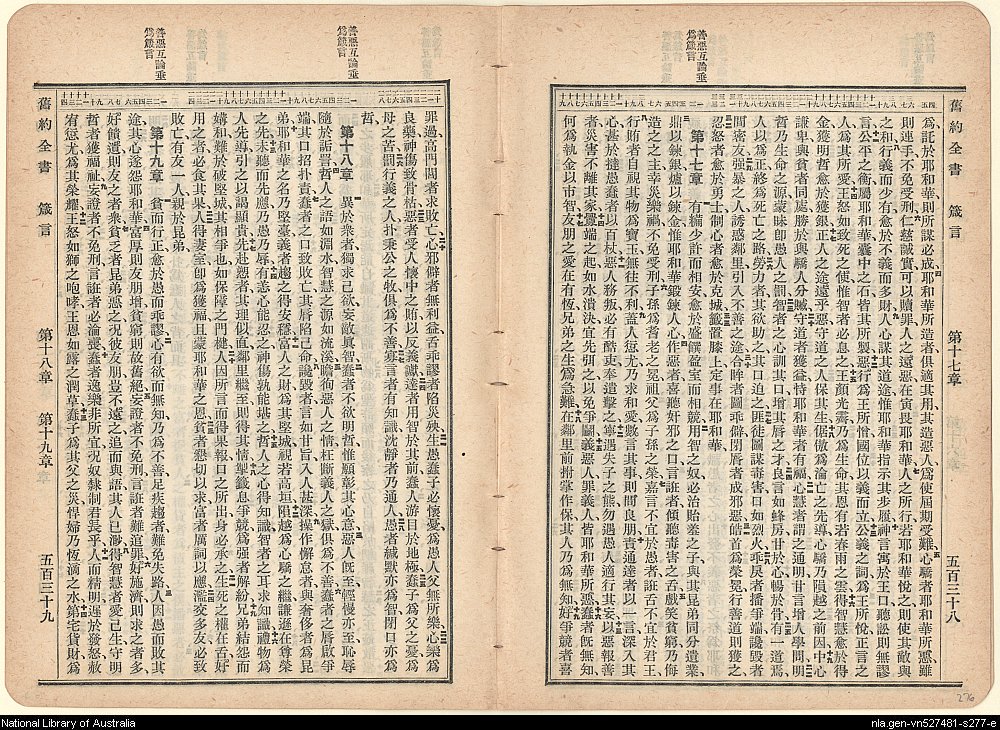 善惡互論垂
爲箴言
舊約全書 箴言 第十七章 五百三十八
爲託於耶和華則所謀必成耶和華所造者俱適其用其造惡人爲使屆期受難心驕者耶和華所惡雖
則連手不免受刑仁慈誠實可以贖罪人之遠惡在寅畏耶和華人之所行若耶和華悅之則使其敵與
之和行義而少有愈於不義而多財人心謀其道途惟耶和華指示其步履神言寓於王口聽訟則無謬
言公平之衡屬耶和華囊中之石者其所製惡行爲王所憎國位以義而立公義之詞爲王所悅正言之
人爲其所愛王怒如致死之使惟智者必息之王顏光霽乃爲生命其恩有若春雨之雲得智慧愈於得
金獲明哲愈於獲銀正人之途遠乎惡守道之人保其生倨傲爲淪亡之先導心驕乃隕越之前因中心
謙卑與貧者同居勝於與驕人分贓守道者獲益恃耶和華者有福心慧者謂之通明甘言增人學問明
哲乃生命之源蒙昧卽愚人之罰智者之心訓其口增其唇之才良言如蜂房甘於心暢於骨有一道焉
人以爲正終爲死亡之路勞力者其欲助之以口迫之匪徒圖謀毒害口如烈火乖戾者播爭端讒毀者
間密友强暴之人誘惑鄰里引入不善之途合眸者圖乖僻閉脣者成邪惡皓首爲榮冕行善道則獲之
忍怒者愈於勇士制心者愈於克城籤置膝上定事在耶和華
第十七章 有餅少許而相安愈於盛饌盈室而相競用智之奴必治貽羞之子與其昆弟同分遺業
鼎以鍊銀爐以鍊金惟耶和華鍛鍊人心作惡者喜聽奸邪之口言誑者傾聽毒害之舌戲笑貧窮乃侮
造之之主幸災樂禍不免受刑子孫爲耆老之冕祖父爲子孫之榮嘉言不宜於愚者誑舌不宜於君王
行賄者自視其物爲寶玉無往不利蓋人愆尤乃求和愛數言其事則間良朋責通達者以一言深入其
心甚於撻愚者以百杖惡人務叛必有酷吏奉遣擊之寧遇失子之熊勿遇愚人適行其妄以惡報善
者災害不離其家釁端之起如水潰決宜先弭之以免爭鬭義惡人罪義人皆耶和華所惡蠢者旣無知
何爲執金以市智友朋之愛在有恆兄弟之生爲急難在鄰里前拊掌作保其人乃爲無知好爭競者喜
善惡互論垂
爲箴言
善惡互論垂
爲箴言
罪過高門閭者求敗亡心邪僻者無利益舌乖謬者陷災殃生愚蠢子必懷憂爲愚人父無所樂心樂爲
良藥神傷致骨枯惡者受人懷中之賄以反義讞達者用智於其前蠢人游目於地極蠢子爲父之憂爲
母之苦罰行義之人扑秉公之牧俱爲不善寡言者有知識沈靜者乃通人愚者緘默亦爲智閉口亦爲
哲
第十八章 異於衆者獨求己欲妄敵眞智蠢者不欲明哲惟願彰其心意惡人旣至輕慢亦至恥辱
隨於詬詈哲人之語如淵水智慧之源如流溪瞻徇惡人之情枉斷義人之獄俱爲不善蠢者之脣啟爭
端其口招扑責蠢者之口致敗亡其脣陷己命讒毀者言如甘旨入人甚深操作懈怠者與奢侈者爲昆
弟耶和華之名乃堅臺義者趨之得安穩富人之財爲其堅城視若高垣隕越爲心驕之繼謙遜在尊榮
之先未聽而先應乃愚乃辱有恙心能忍之神傷孰能堪之哲人之心得知識智者之耳求知識禮物爲
人先導引之以謁顯貴先赴愬者其理似直鄰里繼至則得其情掣籤息爭競爲强者解紛兄弟結怨而
媾和難於破堅城其相爭也如保障之門楗人因所言而得果報口之所出身必承之生死之權在舌好
用之者必食其果人得妻室卽爲獲福且蒙耶和華之恩貧者懇切以求富者厲詞以應濫交多友必致
敗亡有友一人親於昆弟
第十九章 貧而行正愈於愚而乖謬心有欲而無知乃爲不善足疾趨者難免失路人因愚而敗其
途其心遂怨耶和華富厚則友朋增貧窮則故舊絕妄證者不免刑言誑者難逭罪好施濟則求之者多
好饋遺則友之者衆貧乏者昆弟惡之況彼友朋豈不遠之追而與語其人已渺得智慧者愛己生守明
哲者獲福祉妄證者不免刑言誑者必淪喪蠢者逸樂非所宜況奴隸制君長乎人而精明遲於發怒赦
宥愆尤爲其榮耀王怒如獅之咆哮王恩如露之潤草蠢子爲其父之災悍婦乃恆滴之水第宅貨財爲
舊約全書 箴言 第十八章 第十九章 五百三十九
276
National Library of Australia
nla.gen-vn527481-s277-e